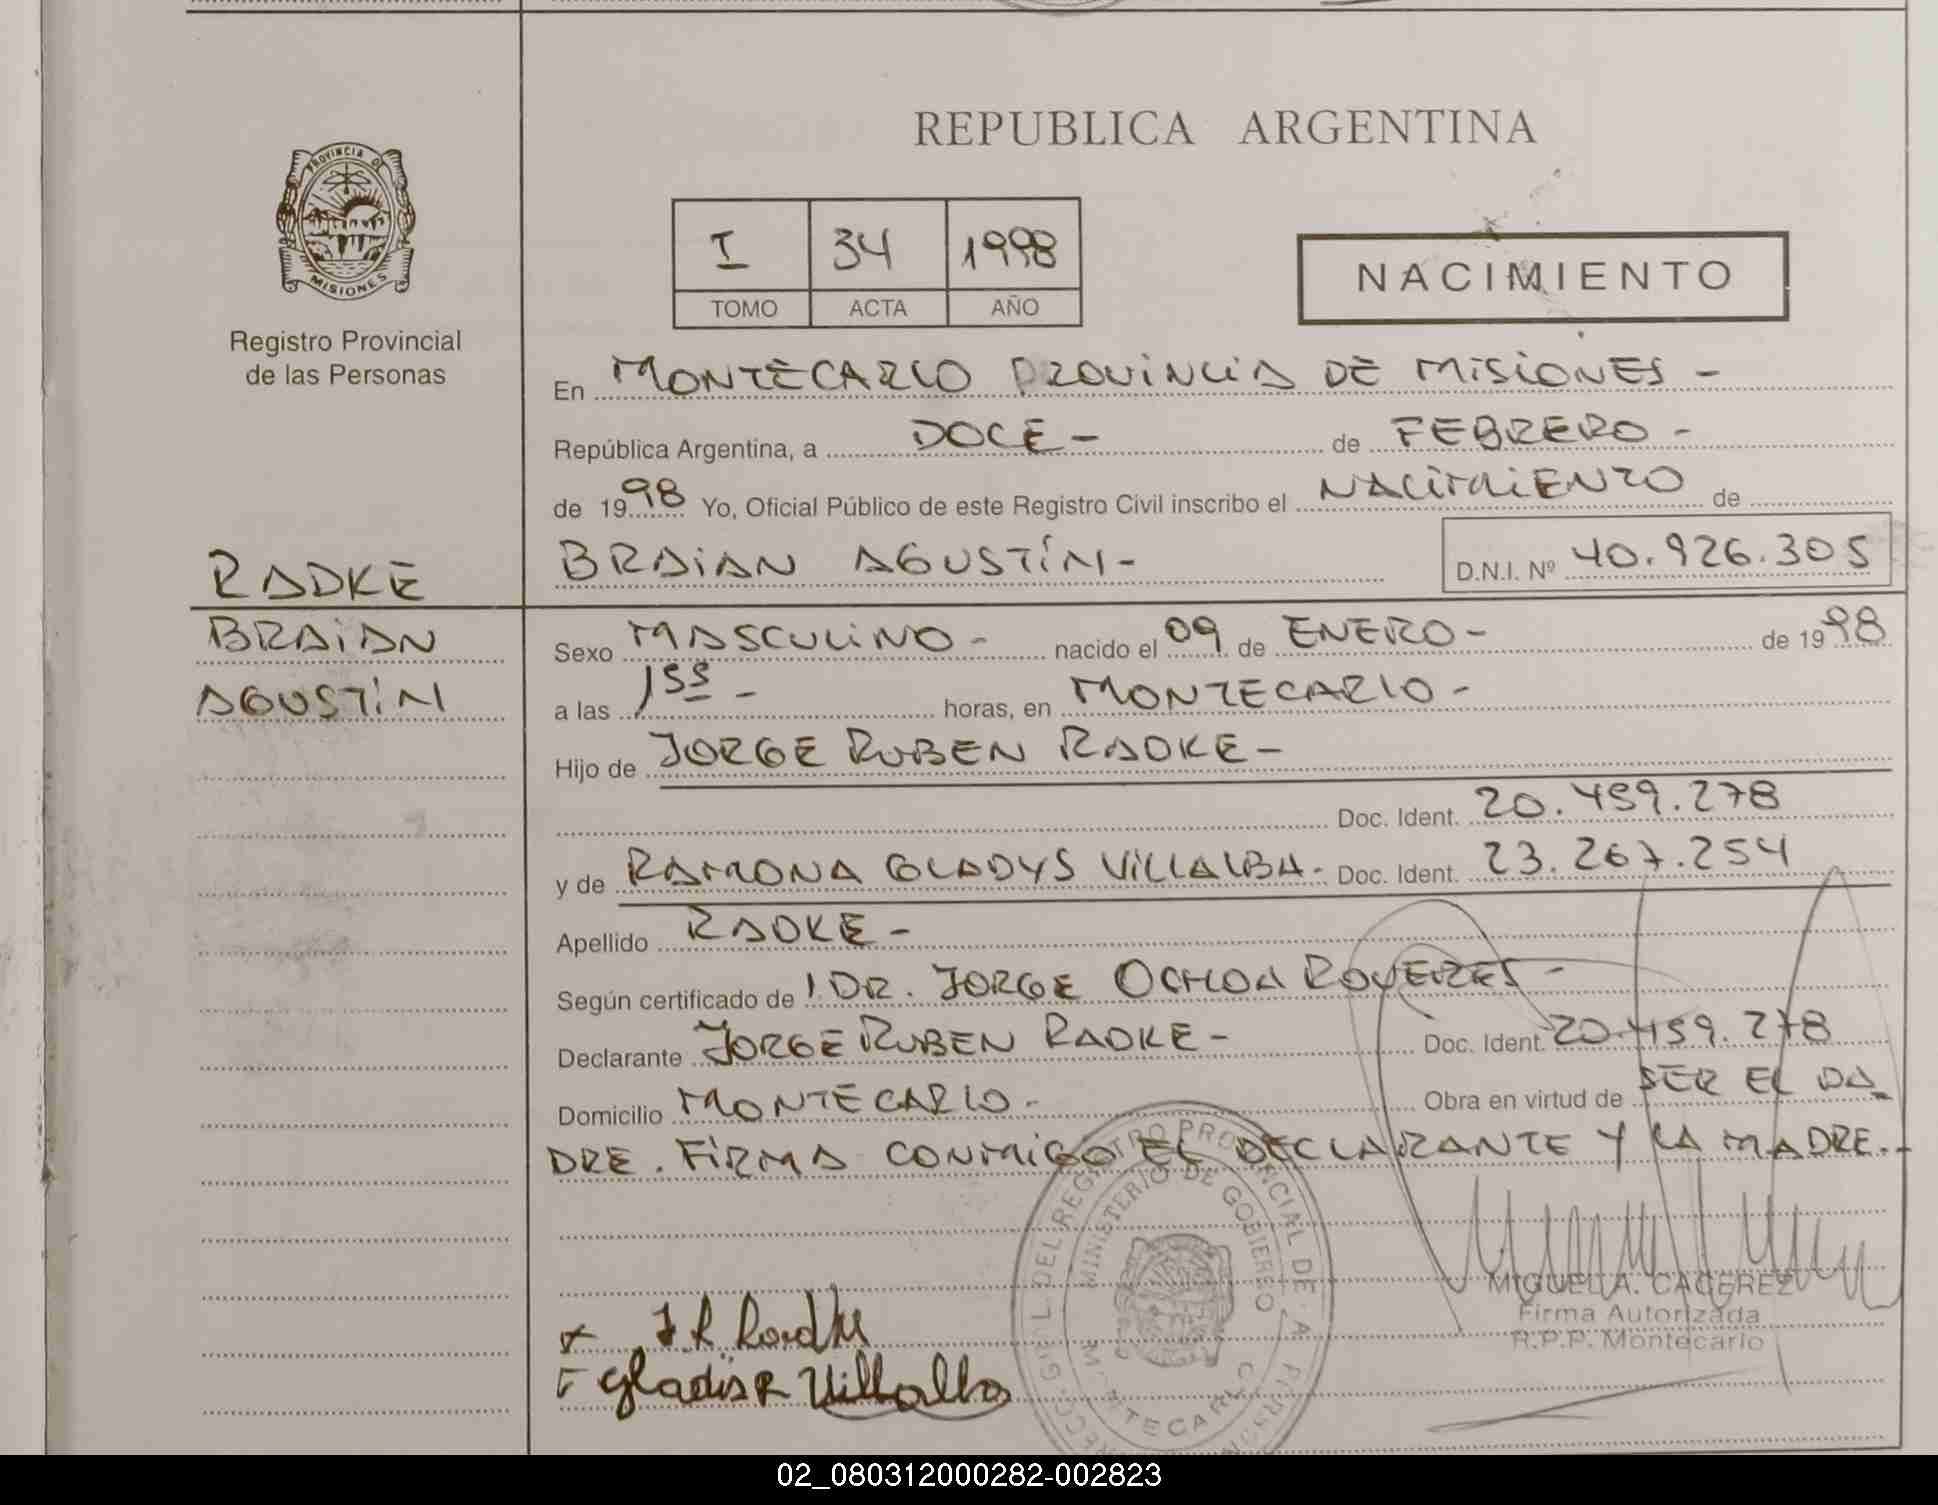 REPUBLICA ARGENTINA
PROVINCIA DE
MISIONES
Registro Provincial
de las Personas
I 34 1998
TOMO ACTA AÑO
NACIMIENTO
En MONTECARLO PROVINCIA DE MISIONES -
República Argentina, a DOCE - de FEBRERO -
de 1998 Yo, Oficial Público de este Registro Civil inscribo el NACIMIENTO de
BRAIAN AGUSTÍN - D.N.I. Nº 40.926.305
RADKE
BRAIAN
AGUSTÍN
Sexo MASCULINO - nacido el 09 de ENERO - de 1998
a las 1 55 - horas, en MONTECARLO -
Hijo de JORGE RUBEN RADKE -
Doc. Ident. 20.459.278
y de RAMONA GLADYS VILLALBA. Doc. Ident. 23.267.254
Apellido RADKE -
Según certificado de DR. JORGE OCHOA ROVERES -
Declarante JORGE RUBEN RADKE - Doc. Ident. 20.459.278
Domicilio MONTECARLO - Obra en virtud de SER EL PA
DRE. FIRMA CONMIGO EL DECLARANTE Y LA MADRE. -
REGISTRO PROVINCIAL DE
MINISTERIO DE GOBIERNO
MONTECARLO
MIGUEL A. CACEREZ
Firma Autorizada
R.P.P. Montecarlo
J R Radke
Gladis R Villalba
02_080312000282-002823